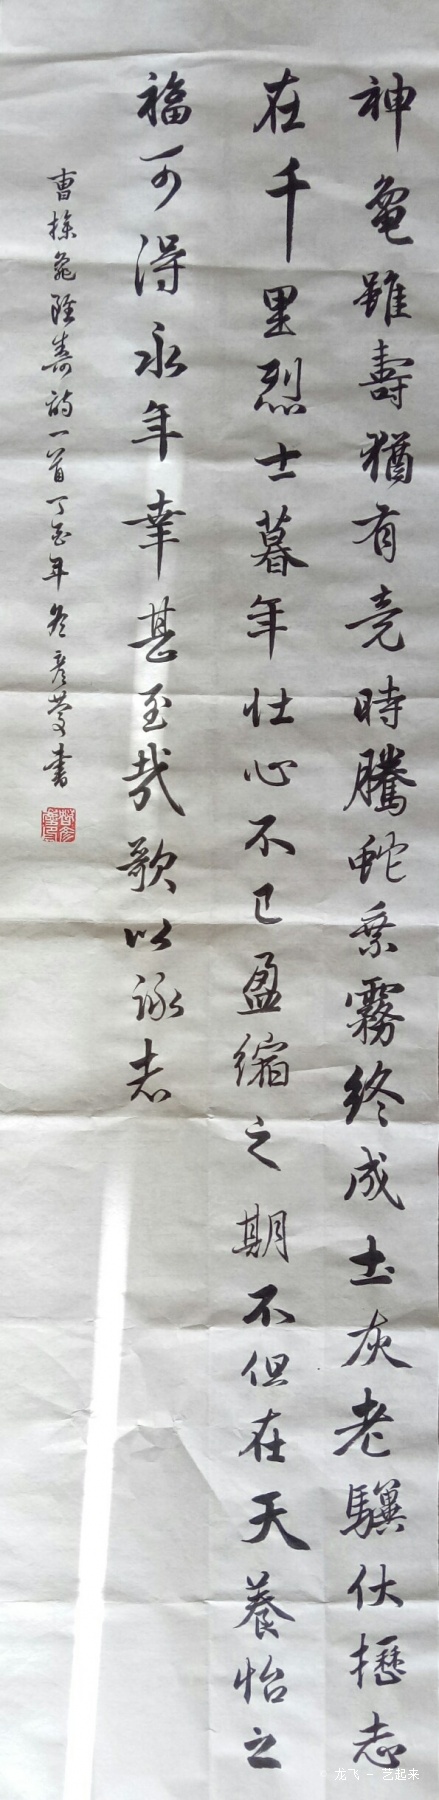 神龜雖壽猶有竟時騰蛇乘霧終成土灰老驥伏攊志
在千里烈士暮年壮心不已盈缩之期不但在天養怡之
福可得永年幸甚至哉歌以詠志
曹操龜雖壽詩一首丁酉年冬彦蔓書
龙飞 - 艺起来